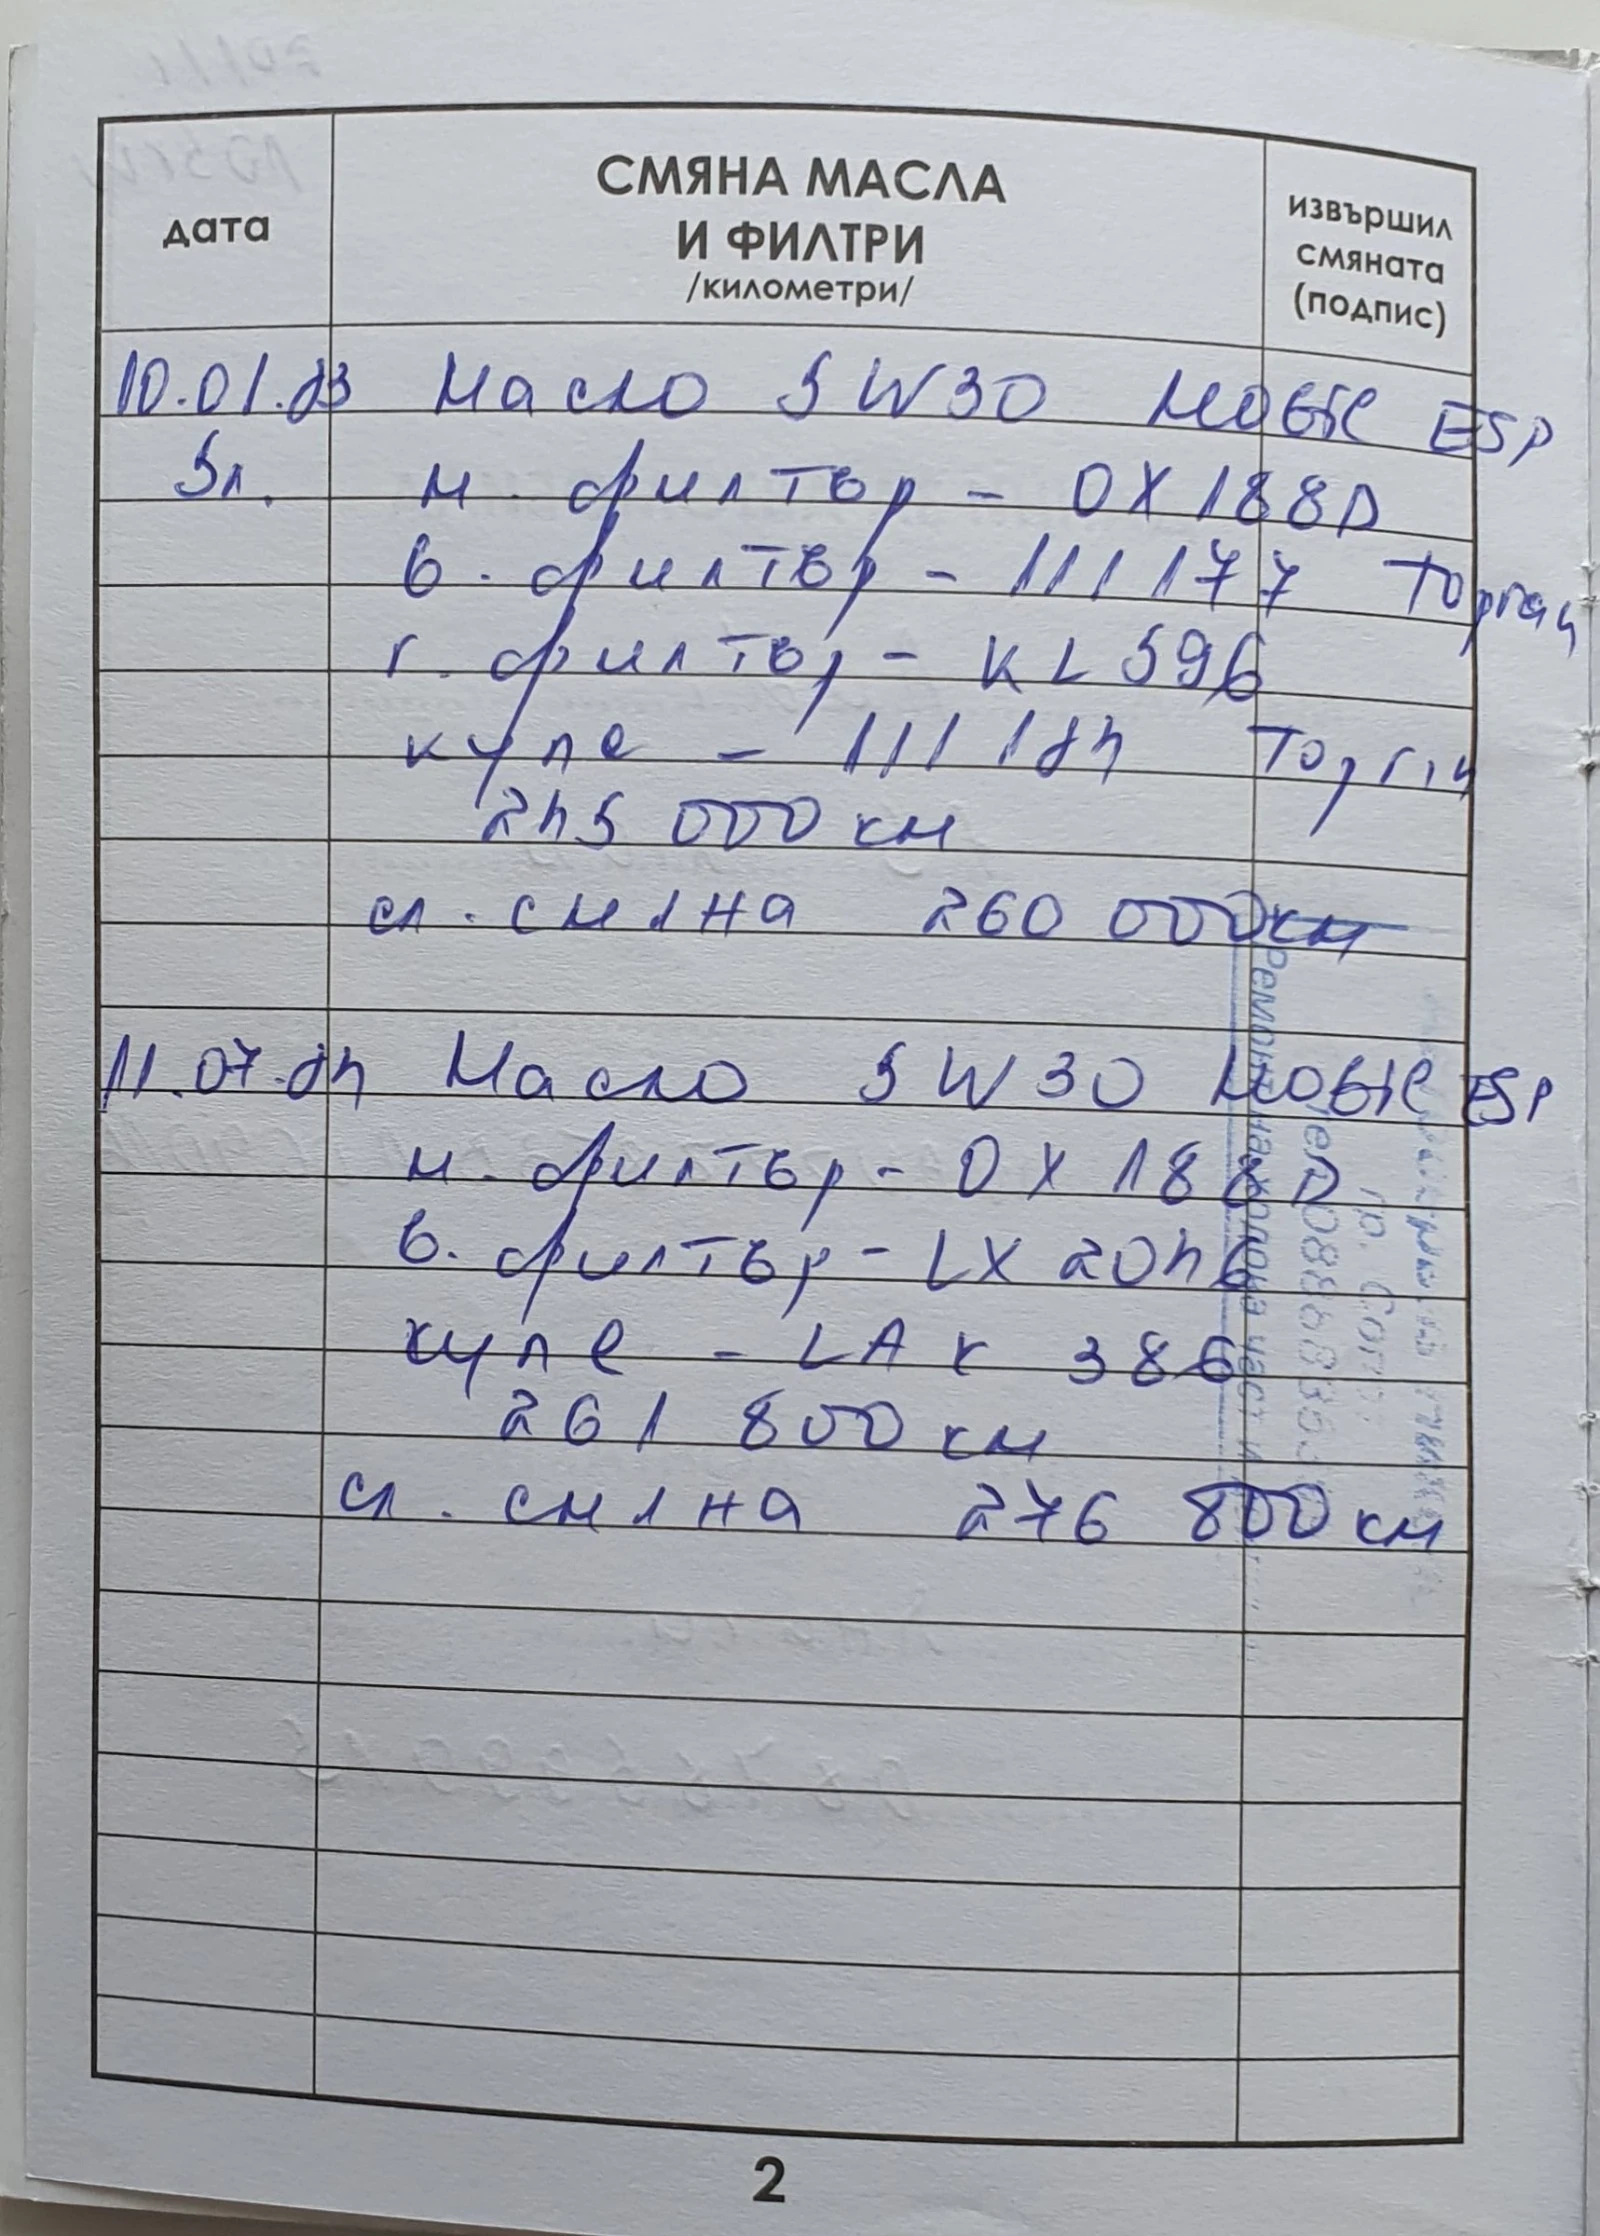 дата
СМЯНА МАСЛА
И ФИЛТРИ
/километри/
извършил
смяната
(подпис)
10.01.23 Масло 5W30 Mobil ESP
5л. м. филтър - OX 188D
в. филтър - 111177
г. филтър - KL 596
купе - 111124
245 000 км
сл. смяна 260 000км
11.07.24 Масло 5W30 Mobil ESP
м. филтър - OX 188D
в. филтър - LX 2046
купе - LAK 386
261 800 км
сл. смяна 276 800 км
2